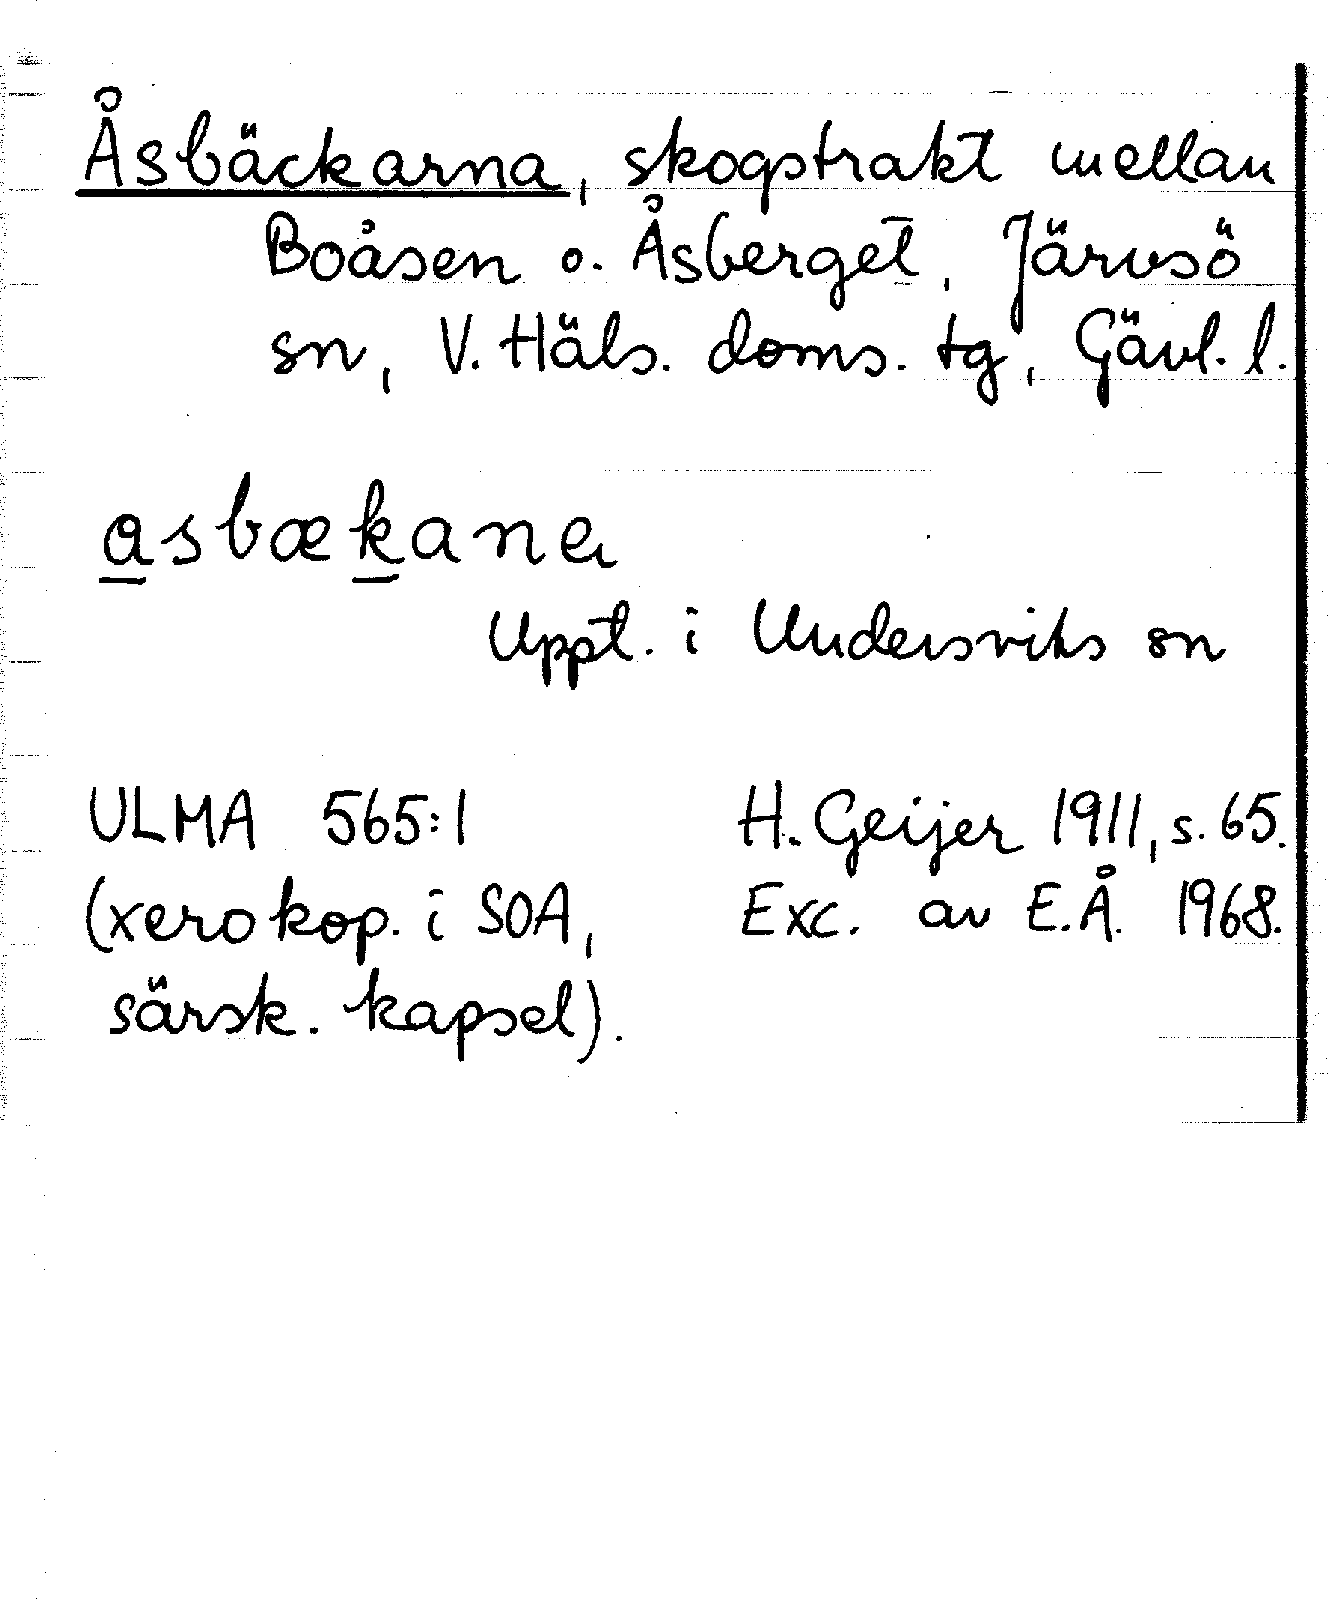 Åsbäckarna, skogstrakt mellan
Boåsen o. Åsberget, Järvsö
sn, V. Häls. doms. tg, Gävl. l.
asbækana
Uppt. i Undersviks sn
ULMA 565:1 H. Geijer 1911, s. 65.
(xerokop. i SOA, Exc. av E.Å. 1968.
särsk. kapsel).